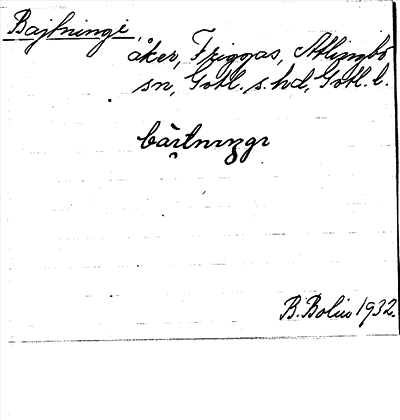 Bajtningi,
åker, Friggas, Atlingbo
sn, Gotl. s. hd, Gotl. l.
bàitnıŋgı
B. Bolin 1932.